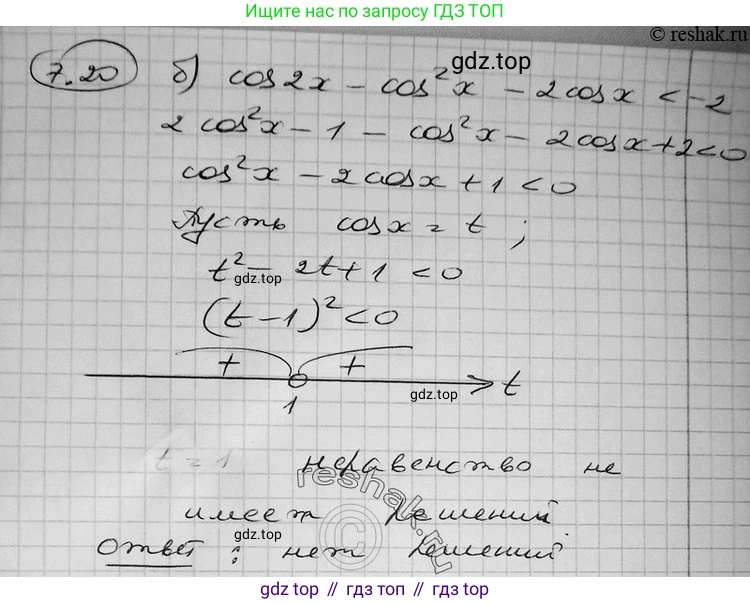 Ищите нас по запросу ГДЗ ТОП
© reshak.ru
gdz.top
7.20 б) cos2x - cos²x - 2cosx < -2
2cos²x - 1 - cos²x - 2cosx + 2 < 0
cos²x - 2cosx + 1 < 0
Пусть cosx = t ;
t² - 2t + 1 < 0
gdz.top
(t - 1)² < 0
+ +
t
gdz.top
1
t = 1 неравенство не
reshak.ru
имеет решений.
©
Ответ: нет решений
gdz top // гдз топ // gdz.top